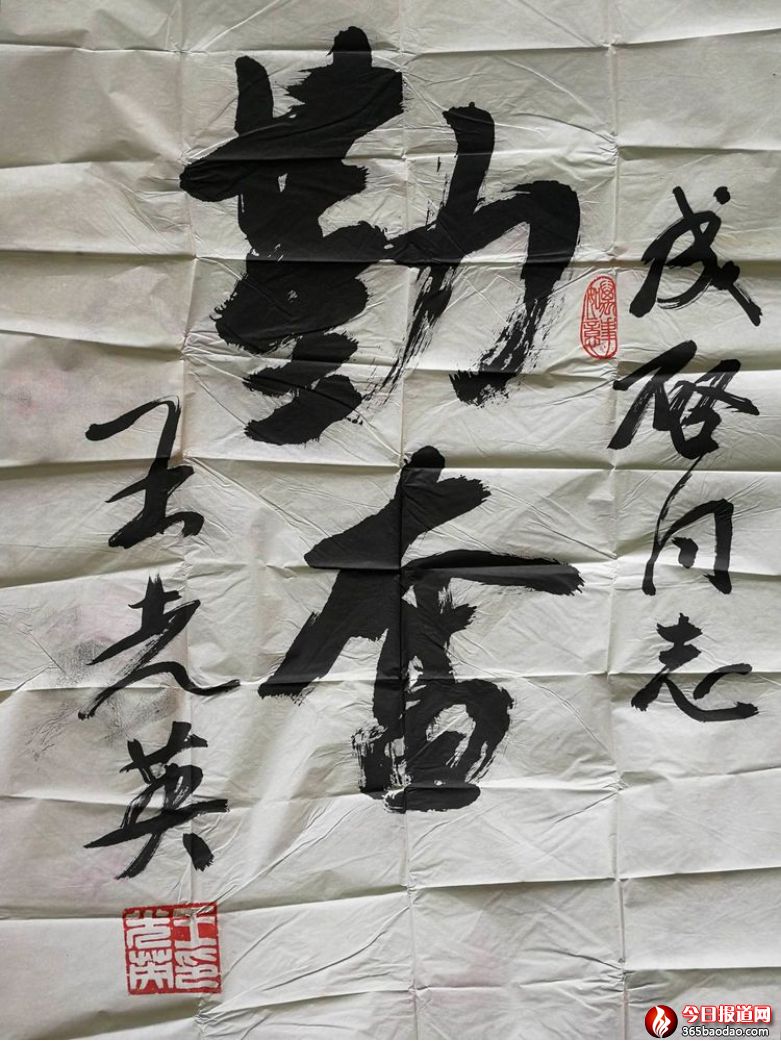 成启同志
勤奋
王光英
王印
光英
今日报道网
365baodao.com